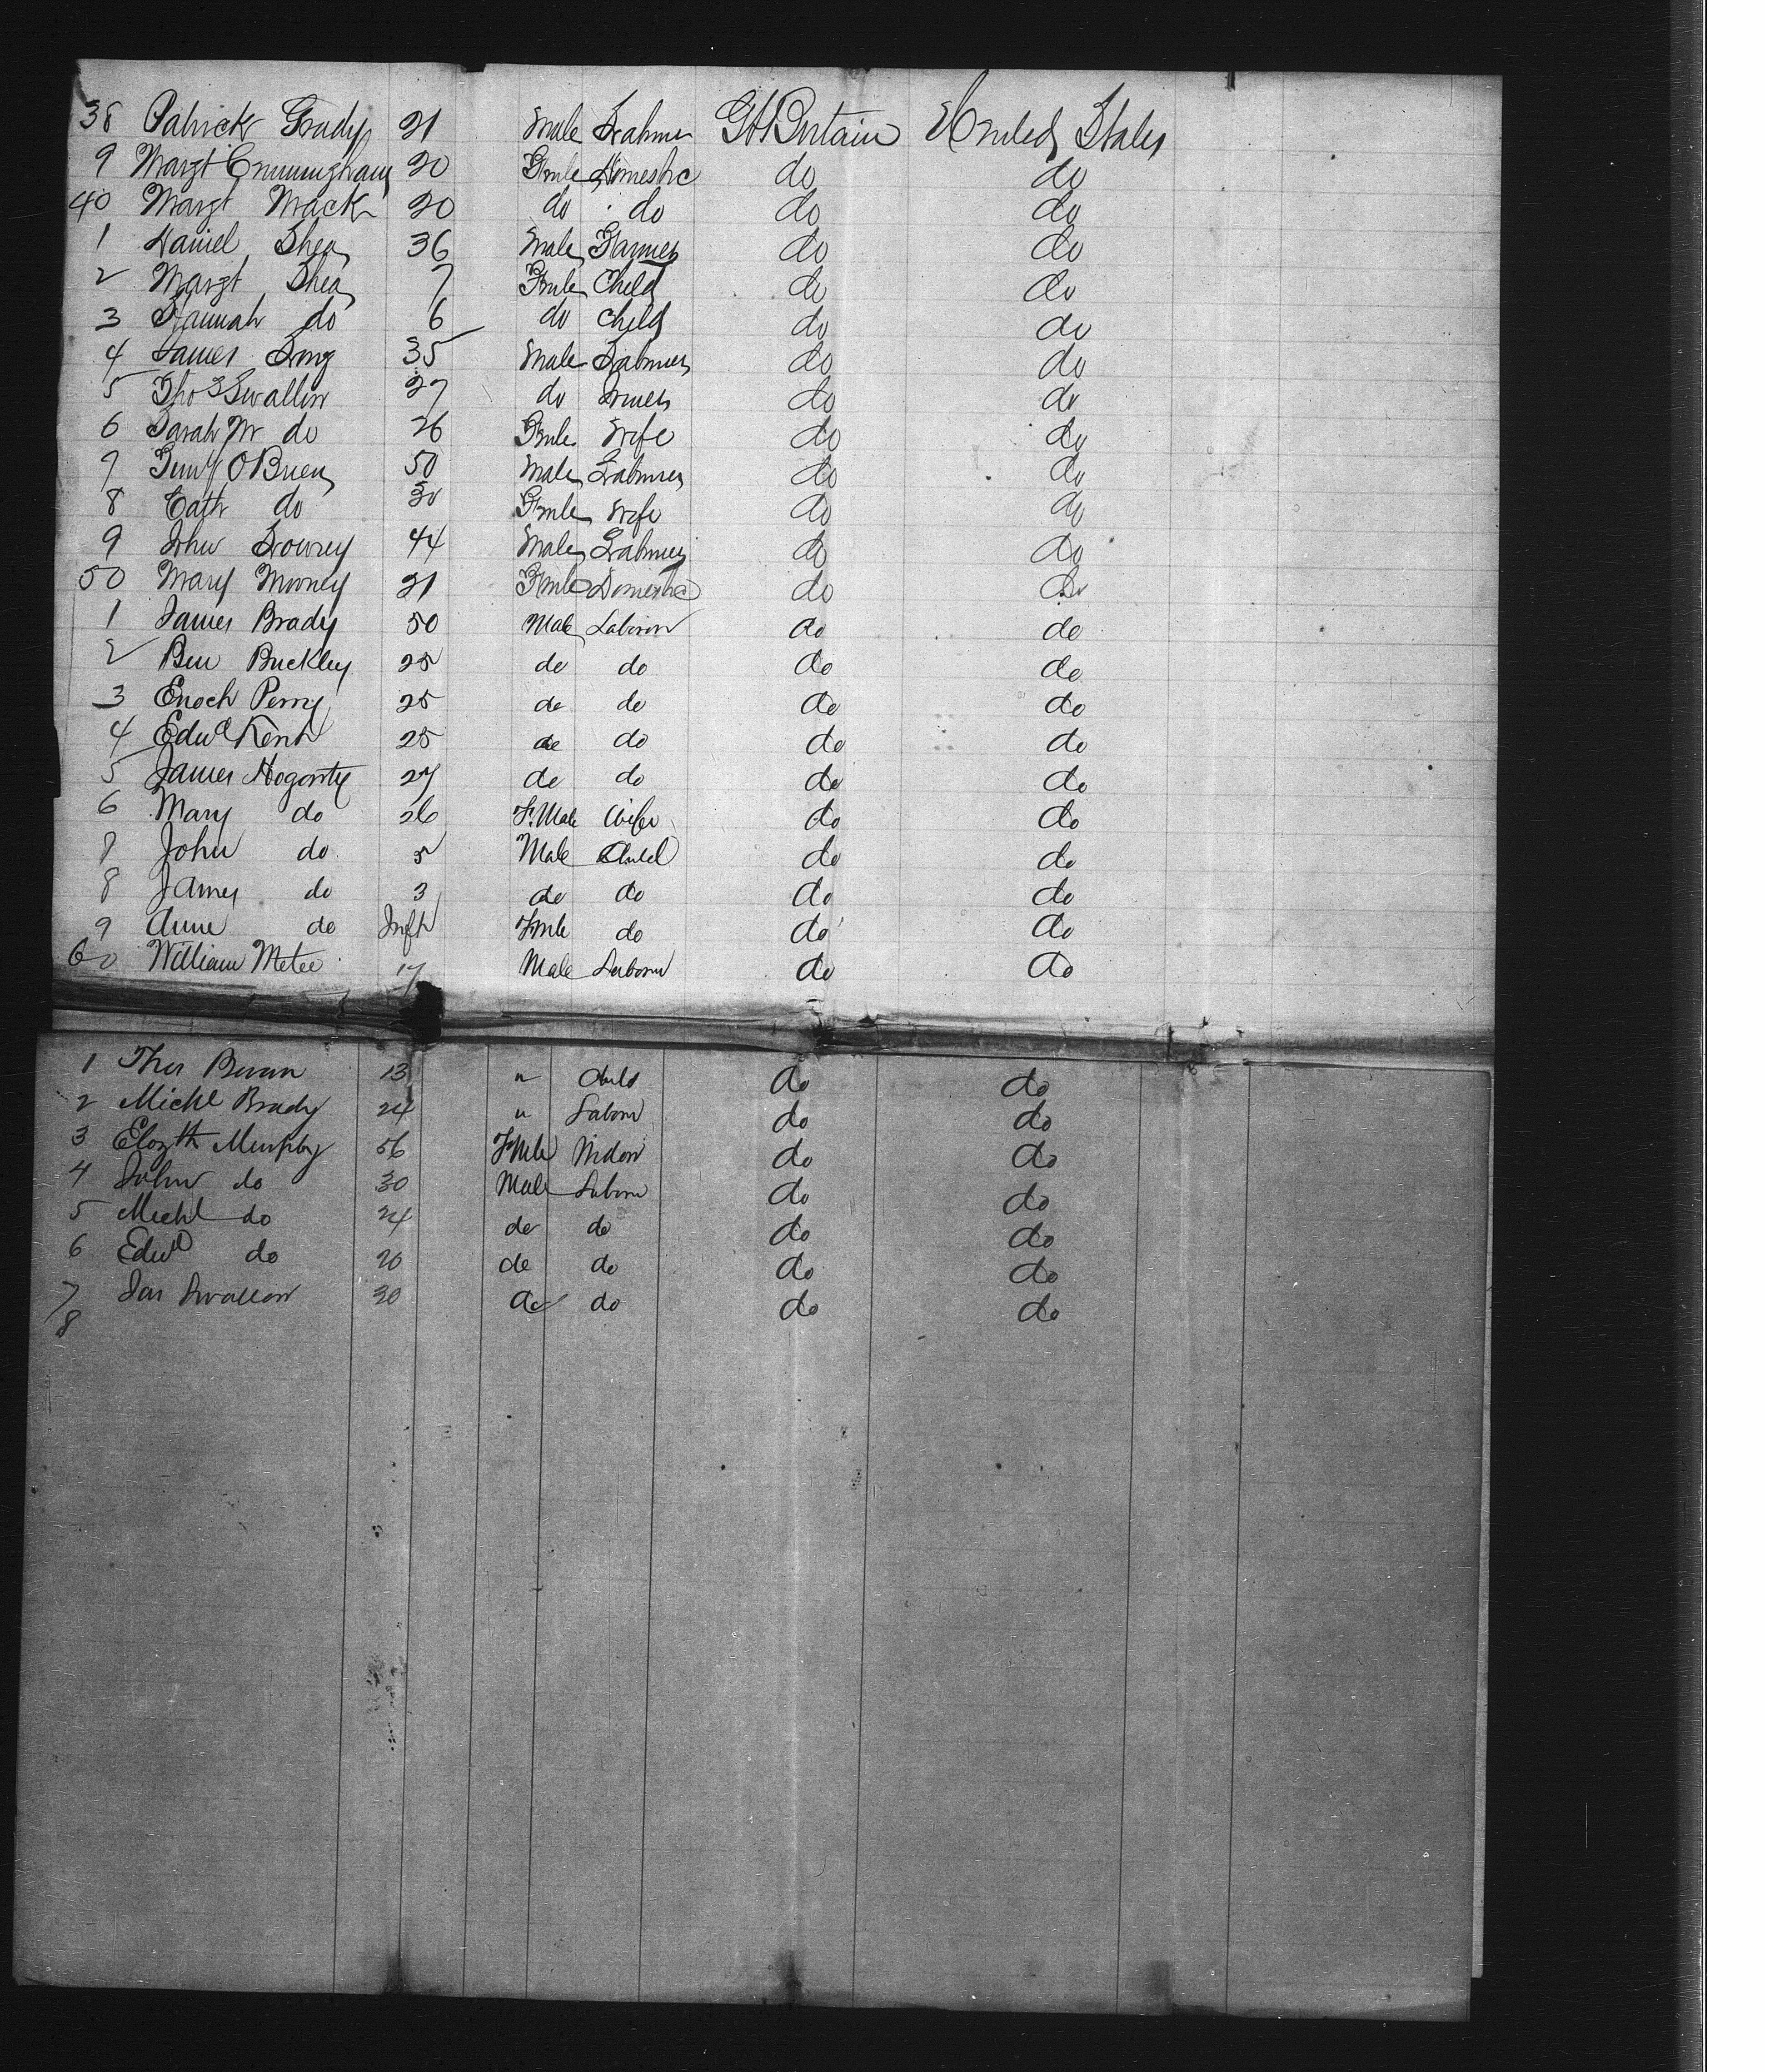 38 Patrick Grady 21 Male Labourer Gt Britain United States
9 Margt Cunningham 20 Fmle Domestic do do
40 Margt Mack 20 do do do do
1 Daniel Shea 36 Male Farmer do do
2 Margt Shea 7 Fmle Child do do
3 Hannah do 6 do Child do do
4 James Long 35 Male Labourer do do
5 Thos Swallow 27 do do do
6 Sarah M do 26 Fmle Wife do do
7 Timy O'Brien 50 Male Labourer do do
8 Cath do 30 Fmle Wife do do
9 John Lowrey 44 Male Labourer do do
50 Mary Mooney 21 Fmle Domestic do do
1 James Brady 50 Male Laborer do do
2 Ben Buckley 25 do do do do
3 Enoch Perry 25 do do do do
4 Edwd Kent 25 do do do do
5 James Hogarty 27 do do do do
6 Mary do 26 F.Male Wife do do
7 John do 5 Male Child do do
8 James do 3 do do do do
9 Anne do Inft Fmle do do do
60 William Metee 17 Male Laborer do do
1 Thos 13 " Child do do
2 Michl Brady 24 " Laborer do do
3 Elizth Murphy 56 Fmle Widow do do
4 John do 30 Male Laborer do do
5 Michl do 24 do do do do
6 Edwd do 20 do do do do
7 Jas Swallow 30 do do do do
8